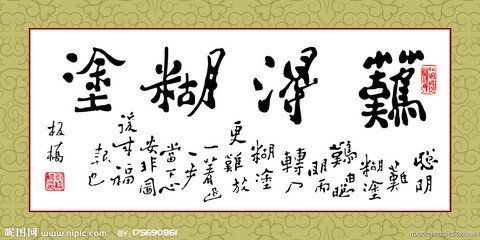 難得糊塗
聰明
難
糊塗
難由聰
明而
轉入
糊塗
更難放
一著退
一步
當下心
安非圖
後來福
報也
板橋
昵图网
www.nipic.com
BY: 175690861